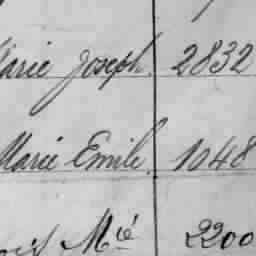 Marie Joseph. 2832
Marie Emile. 1048
Mié 2200